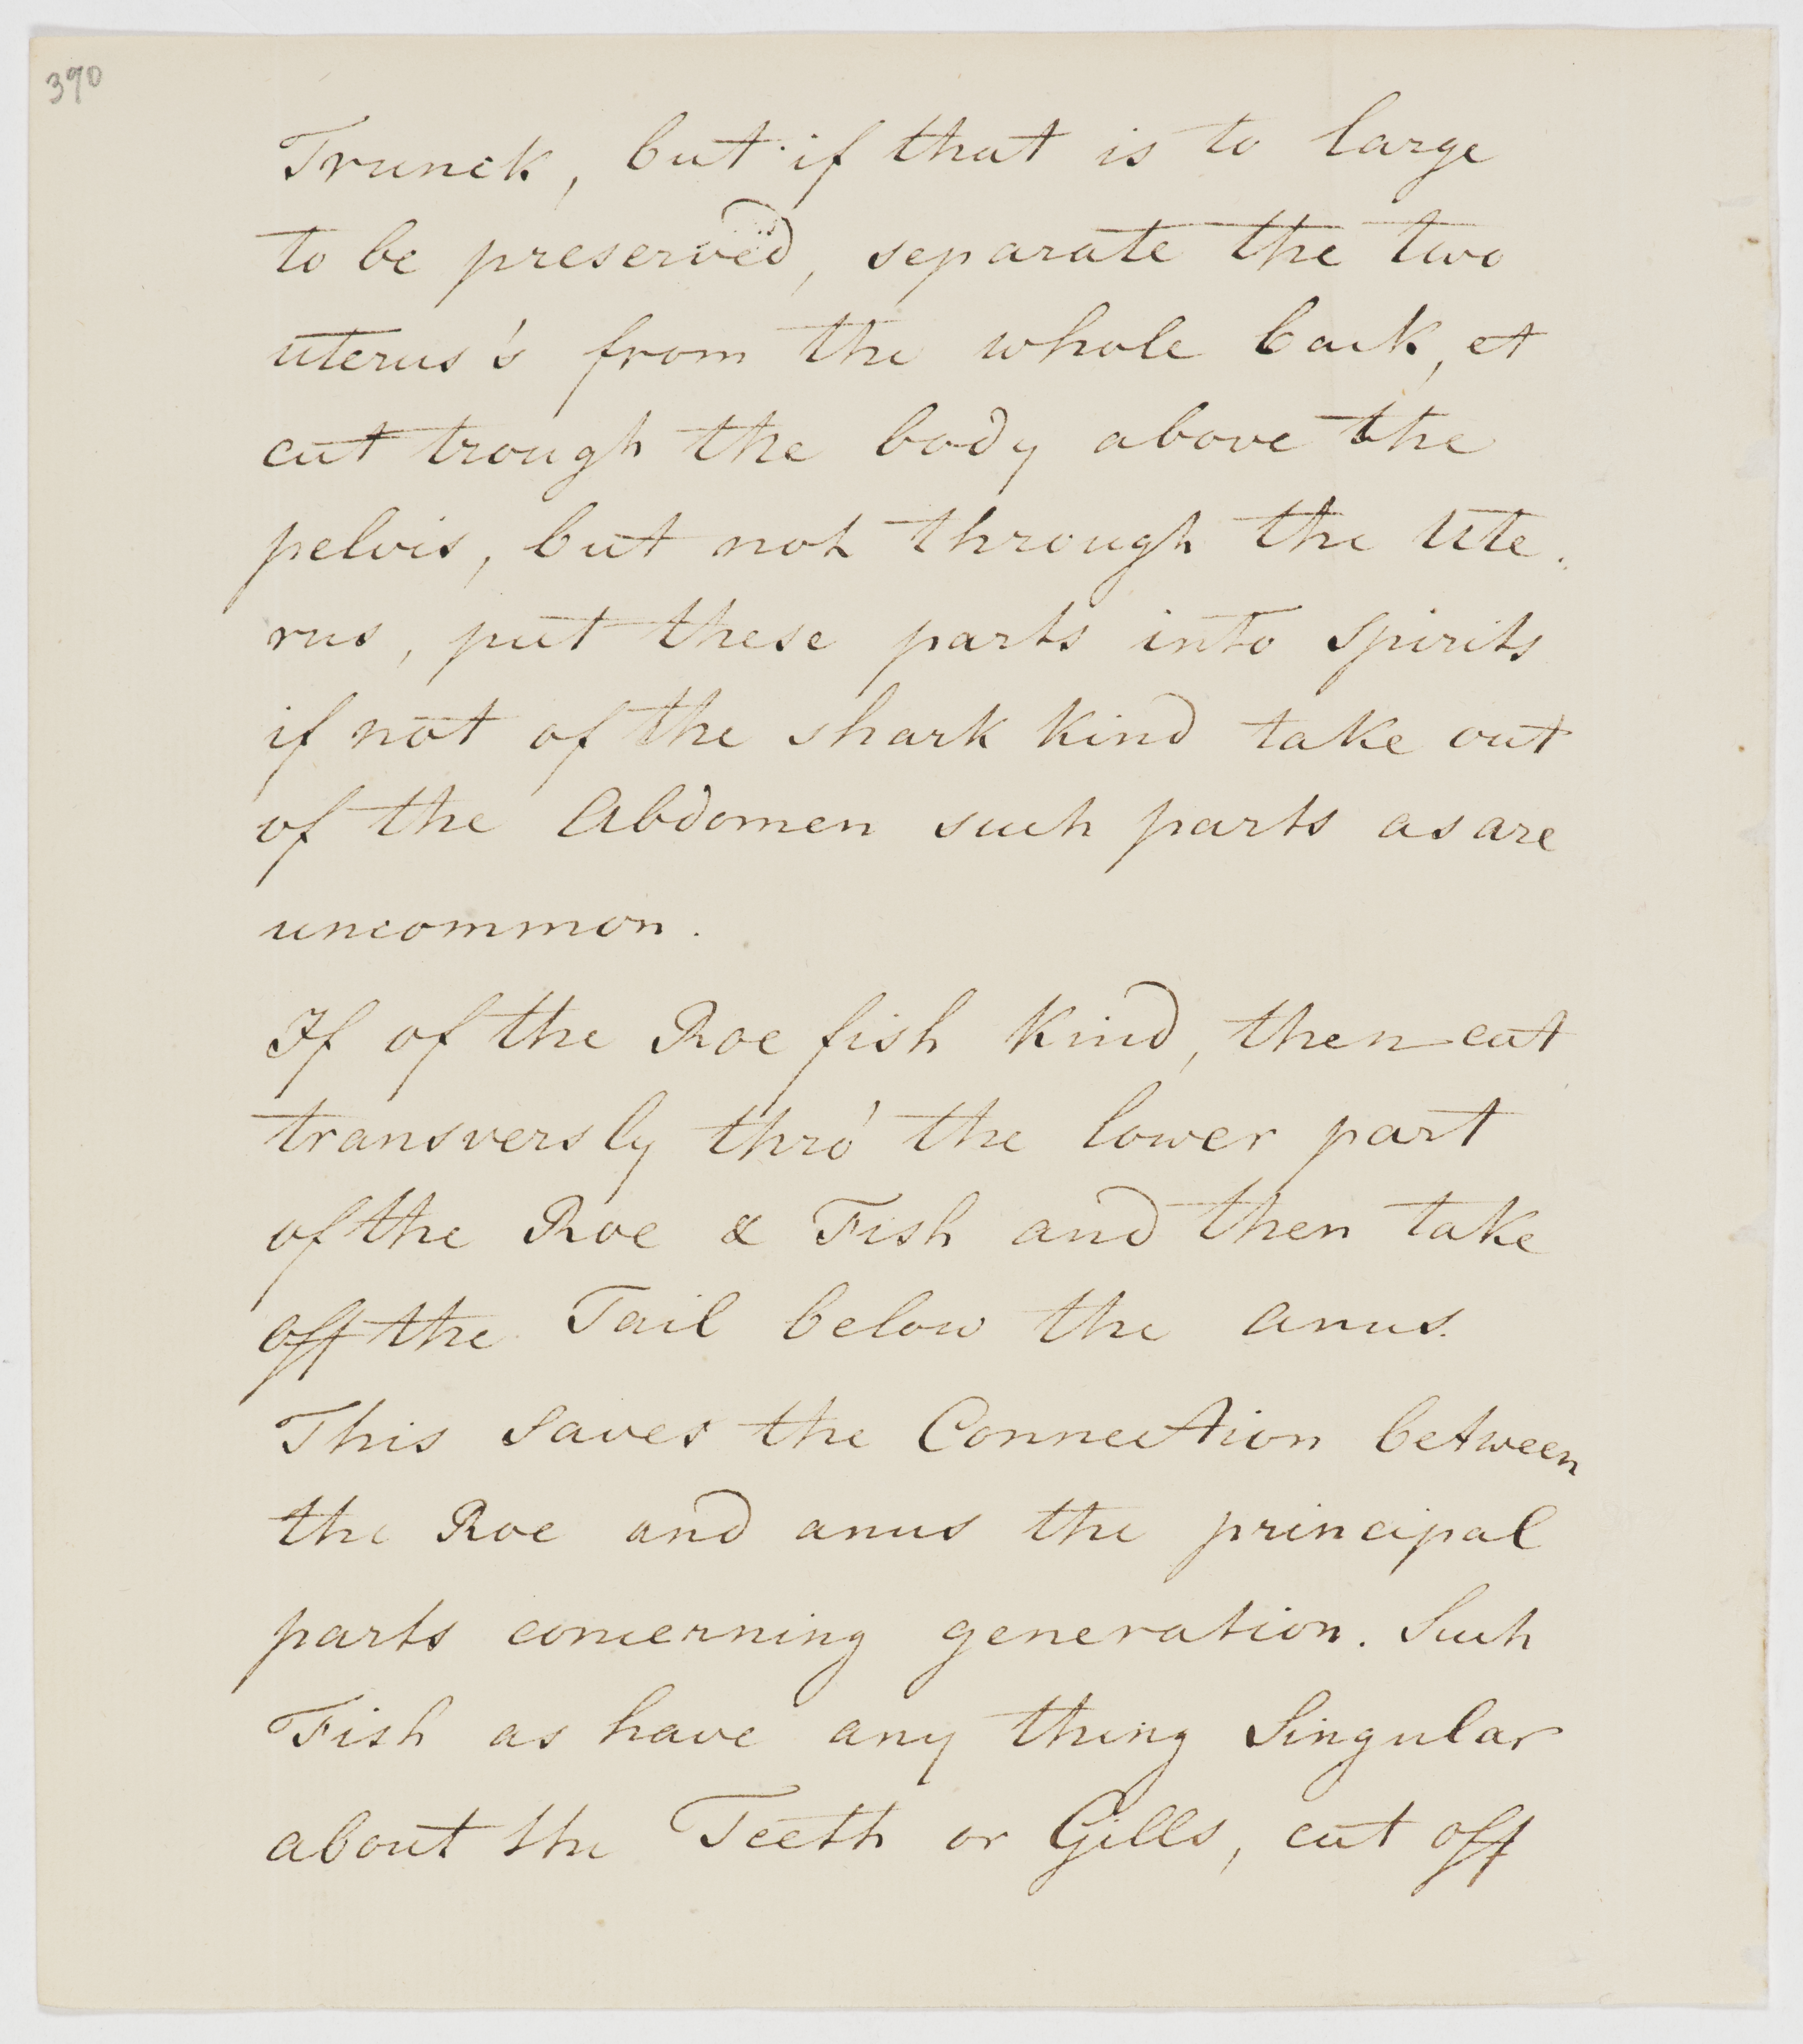 390
Trunck, but if that is to large
to be preserved, separate the two
uterus's from the whole back, et
cut trough the body above the
pelvis, but not through the Ute.
rus, put these parts into Spirits
if not of the shark Kind take out
of the Abdomen such parts as are
uncommon.
If of the Roe fish Kind, then cut
transversly thro' the lower part
of the Roe & Fish and then take
off the Tail below the anus.
This Saves the Connection between
the Roe and anus the principal
parts concerning generation. Such
Fish as have any thing Singular
about the Teeth or Gills, cut off